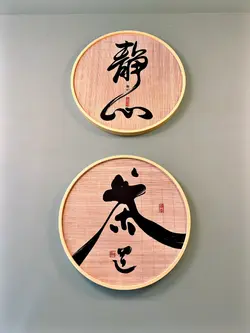 静心
茶道